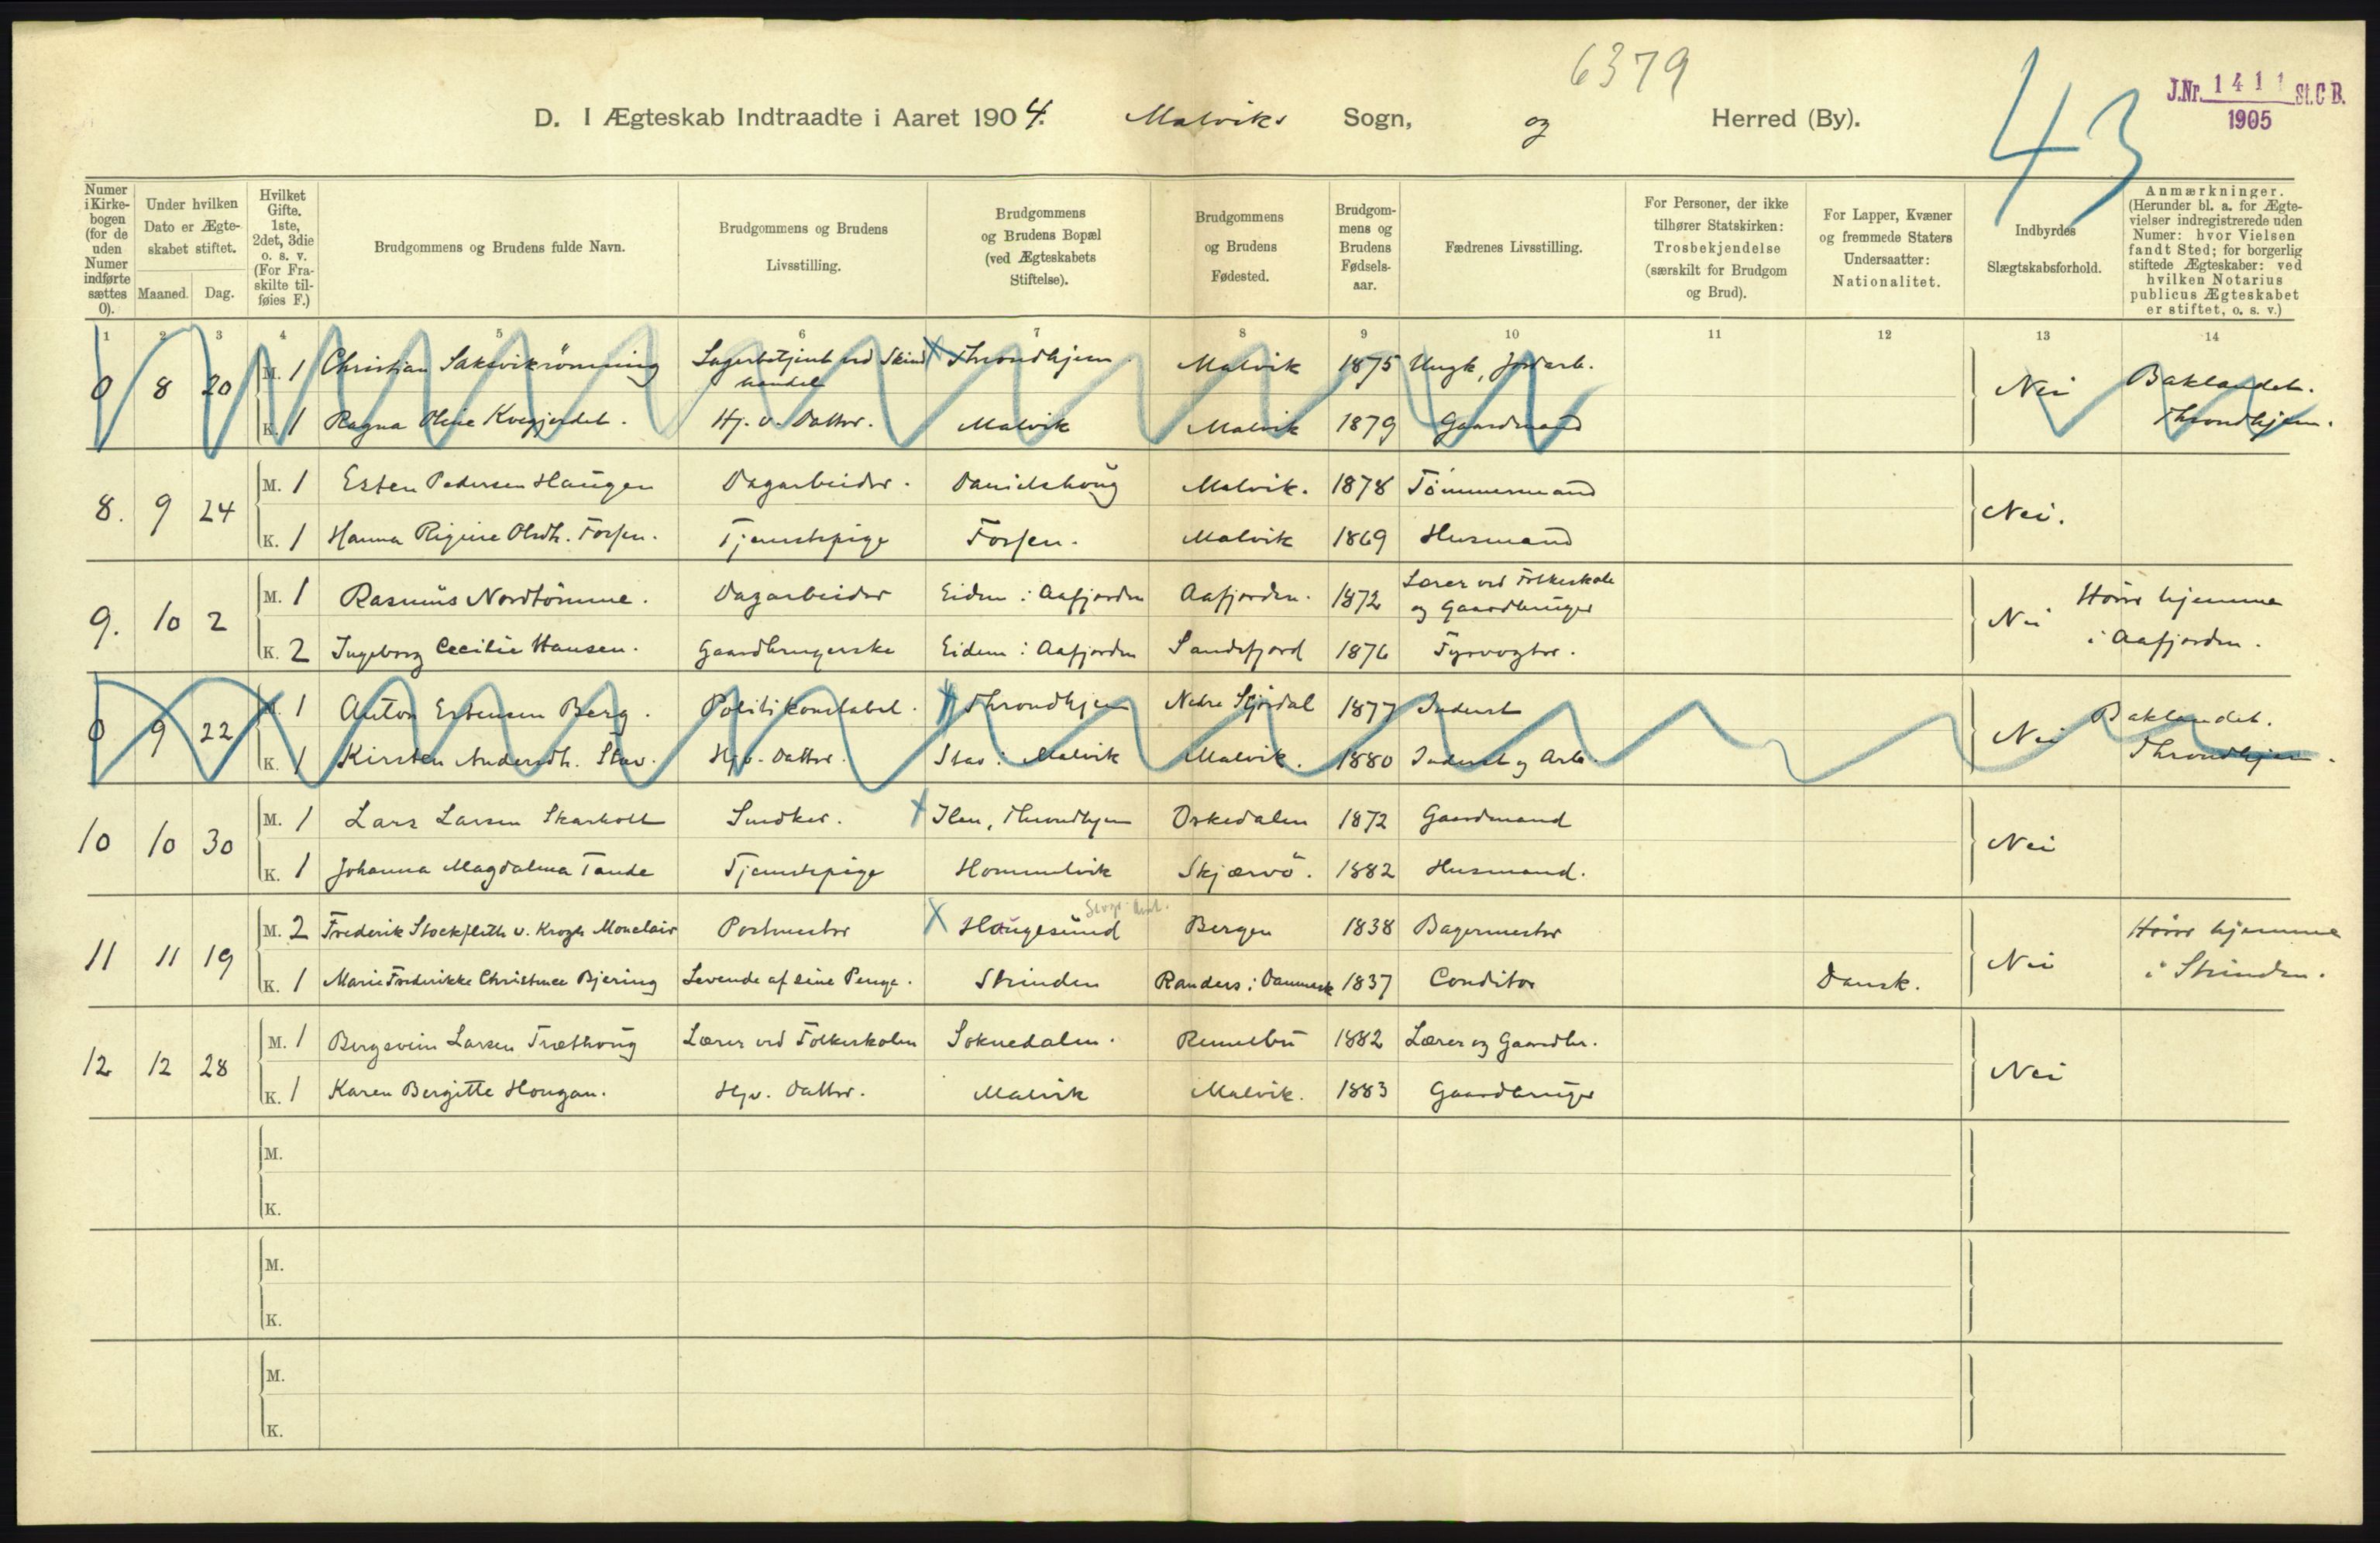 6379
43
J.Nr. 1411 St.C B.
1905
D. I Ægteskab Indtraadte i Aaret 1904. Malviks Sogn, og Herred (By).
Numer i Kirkebogen (for de uden Numer indførte sættes 0).
Under hvilken Dato er Ægteskabet stiftet.
Maaned. Dag.
Hvilket Gifte. 1ste, 2det, 3die o. s. v. (For Fraskilte tilføies F.)
Brudgommens og Brudens fulde Navn.
Brudgommens og Brudens Livsstilling.
Brudgommens og Brudens Bopæl (ved Ægteskabets Stiftelse).
Brudgommens og Brudens Fødested.
Brudgommens og Brudens Fødselsaar.
Fædrenes Livsstilling.
For Personer, der ikke tilhører Statskirken: Trosbekjendelse (særskilt for Brudgom og Brud).
For Lapper, Kvæner og fremmede Staters Undersaatter: Nationalitet.
Indbyrdes Slægtskabsforhold.
Anmærkninger. (Herunder bl. a. for Ægtevielser indregistrerede uden Numer: hvor Vielsen fandt Sted; for borgerlig stiftede Ægteskaber: ved hvilken Notarius publicus Ægteskabet er stiftet, o. s. v.)
1 2 3 4 5 6 7 8 9 10 11 12 13 14
0 8 20 M. 1 Christian Saksvikrönning Lagerbetjent ved Skindhandel Throndhjem Malvik 1875 Ungk, Jordarb. Nei Baklandet.
K. 1 Ragna Oline Kvegjerdet. Hj. v. Datter. Malvik Malvik 1879 Gaardmand Throndhjem.
8. 9 24 M. 1 Esten Pedersen Haugen Dagarbeider. Danielshoug Malvik. 1878 Tömmermand Nei.
K. 1 Hanna Rigine Olsdt. Forsen. Tjenestepige Forsen. Malvik 1869 Husmand
9. 10 2 M. 1 Rasmus Nordtömme. Dagarbeider Eidem i Aafjorden Aafjorden. 1872 Lærer ved Folkeskole og Gaardbruger Nei Hörer hjemme
K. 2 Ingeborg Cecilie Hansen. Gaardbrugerske Eidem i Aafjorden Sandefjord 1876 Fyrvogter. i Aafjorden.
0 9 22 M. 1 Anton Estensen Berg. Politikonstabel. Throndhjem Nedre Stjördal 1877 Inderst Nei Baklandet.
K. 1 Kirsten Andersdt. Stav. Hjv. Datter. Stav i Malvik Malvik. 1880 Inderst og Arb. Throndhjem.
10 10 30 M. 1 Lars Larsen Skarholt Snedker. Ilen, Throndhjem Orkedalen 1872 Gaardmand Nei
K. 1 Johanna Magdalena Tande Tjenestepige Hommelvik Skjærvö. 1882 Husmand.
11 11 19 M. 2 Frederik Stockfleth v. Krogh Monclair Postmester Haugesund Bergen 1838 Bagermester Nei Hörer hjemme
K. 1 Marie Frederikke Christence Bjering Levende af sine Penge. Strinden Randers i Danmark 1837 Conditor Dansk. i Strinden.
12 12 28 M. 1 Bergsvein Larsen Træthoug Lærer ved Folkeskolen Soknedalen. Rennebu 1882 Lærer og Gaardbr. Nei
K. 1 Karen Bergitte Hougan. Hjv. Datter. Malvik Malvik. 1883 Gaardbruger
M.
K.
M.
K.
M.
K.